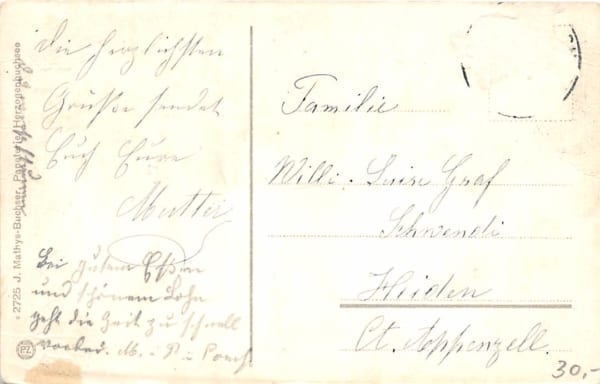 Die herzlichsten
Grüße sendet
Euch Eure
Mutter
Bei gutem Essen
und schönem Lohn
geht die Zeit zu schnell
vorbei. M. . P
Familie
Willi. Luise Graf
Schwendi
Heiden
Ct. Appenzell.
30,-
2725 J. Mathys-Buchser, Papeterie, Herzogenbuchsee
PZ